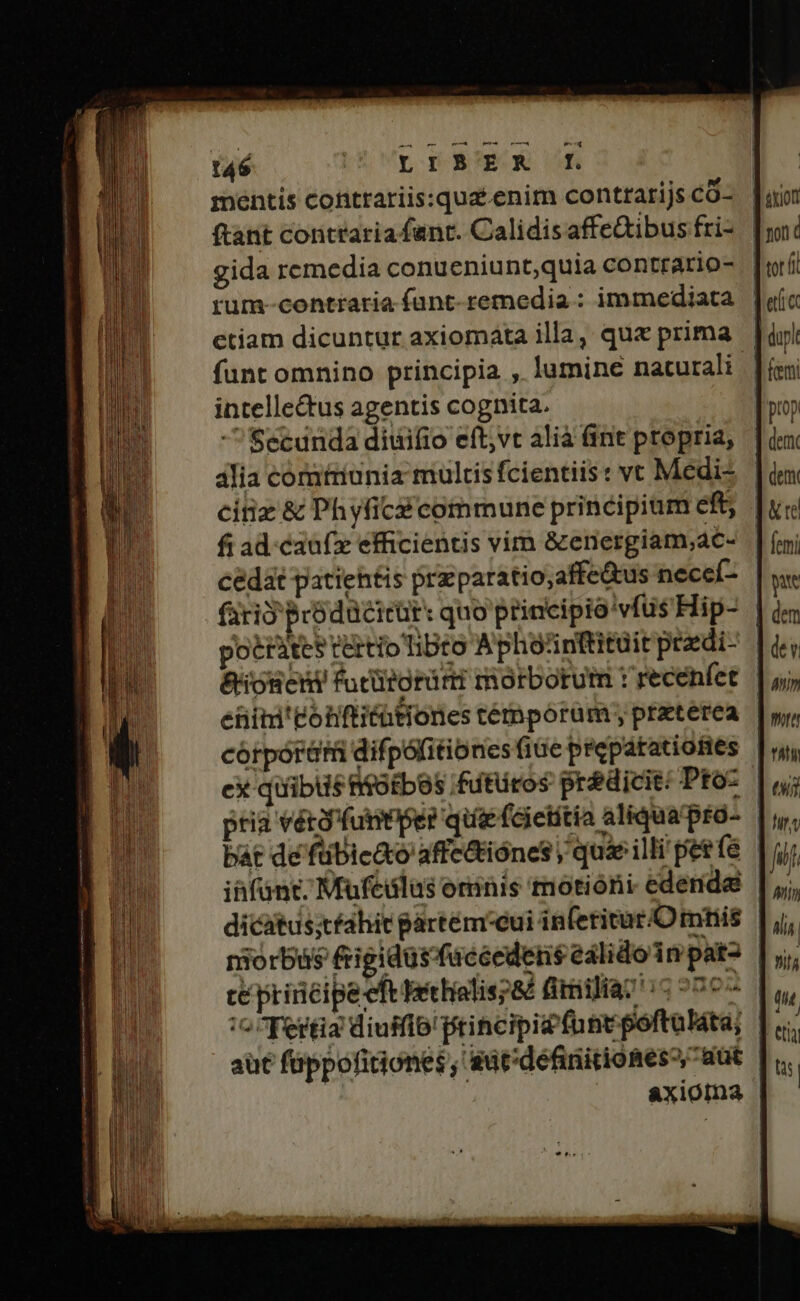 146 LIBER I.
mentis contrariis:quæ enim contrarijs cõ-
ſtant contraria ſunt. Calidis affectibus fri-
gida remedia conueniunt,quia contrario-
rum contraria ſunt remedia : immediata
etiam dicuntur axiomata illa, quæ prima
ſunt omnino principia , lumine naturali
intellectus agentis cognita.
Secunda diuiſio eſt,vt alia ſint propria,
alia communia multis ſcientiis : vt Medi-
cinæ & Phyſicæ commune principium eſt,
ſi ad cauſæ efficientis vim & energiam,ac-
cedat patientis præparatio,affectus neceſ-
ſariò producitur: quo principio vſus Hip-
pocrates tertio libro Aphor.inſtituit prædi-
ctionem futurorum morborum : recenſet
enim conſtitutiones temporum, præterea
corporum diſpoſitiones ſiue preparationes
ex quibus morbos futuros prædicit: Pro-
pria verò ſunt per quæ ſcientia aliqua pro-
bat de ſubiecto affectiones, quæ illi per ſe
inſunt. Muſculus omnis motioni edendæ
dicatus,trahit partem cui inſeritur. Omnis
morbus frigidus ſuccedens calido in par-
te principe eſt læthalis,& ſimilia.
Tertia diuiſio principia ſunt poſtulata,
aut ſuppoſitiones, aut definitiones, aut
axioma